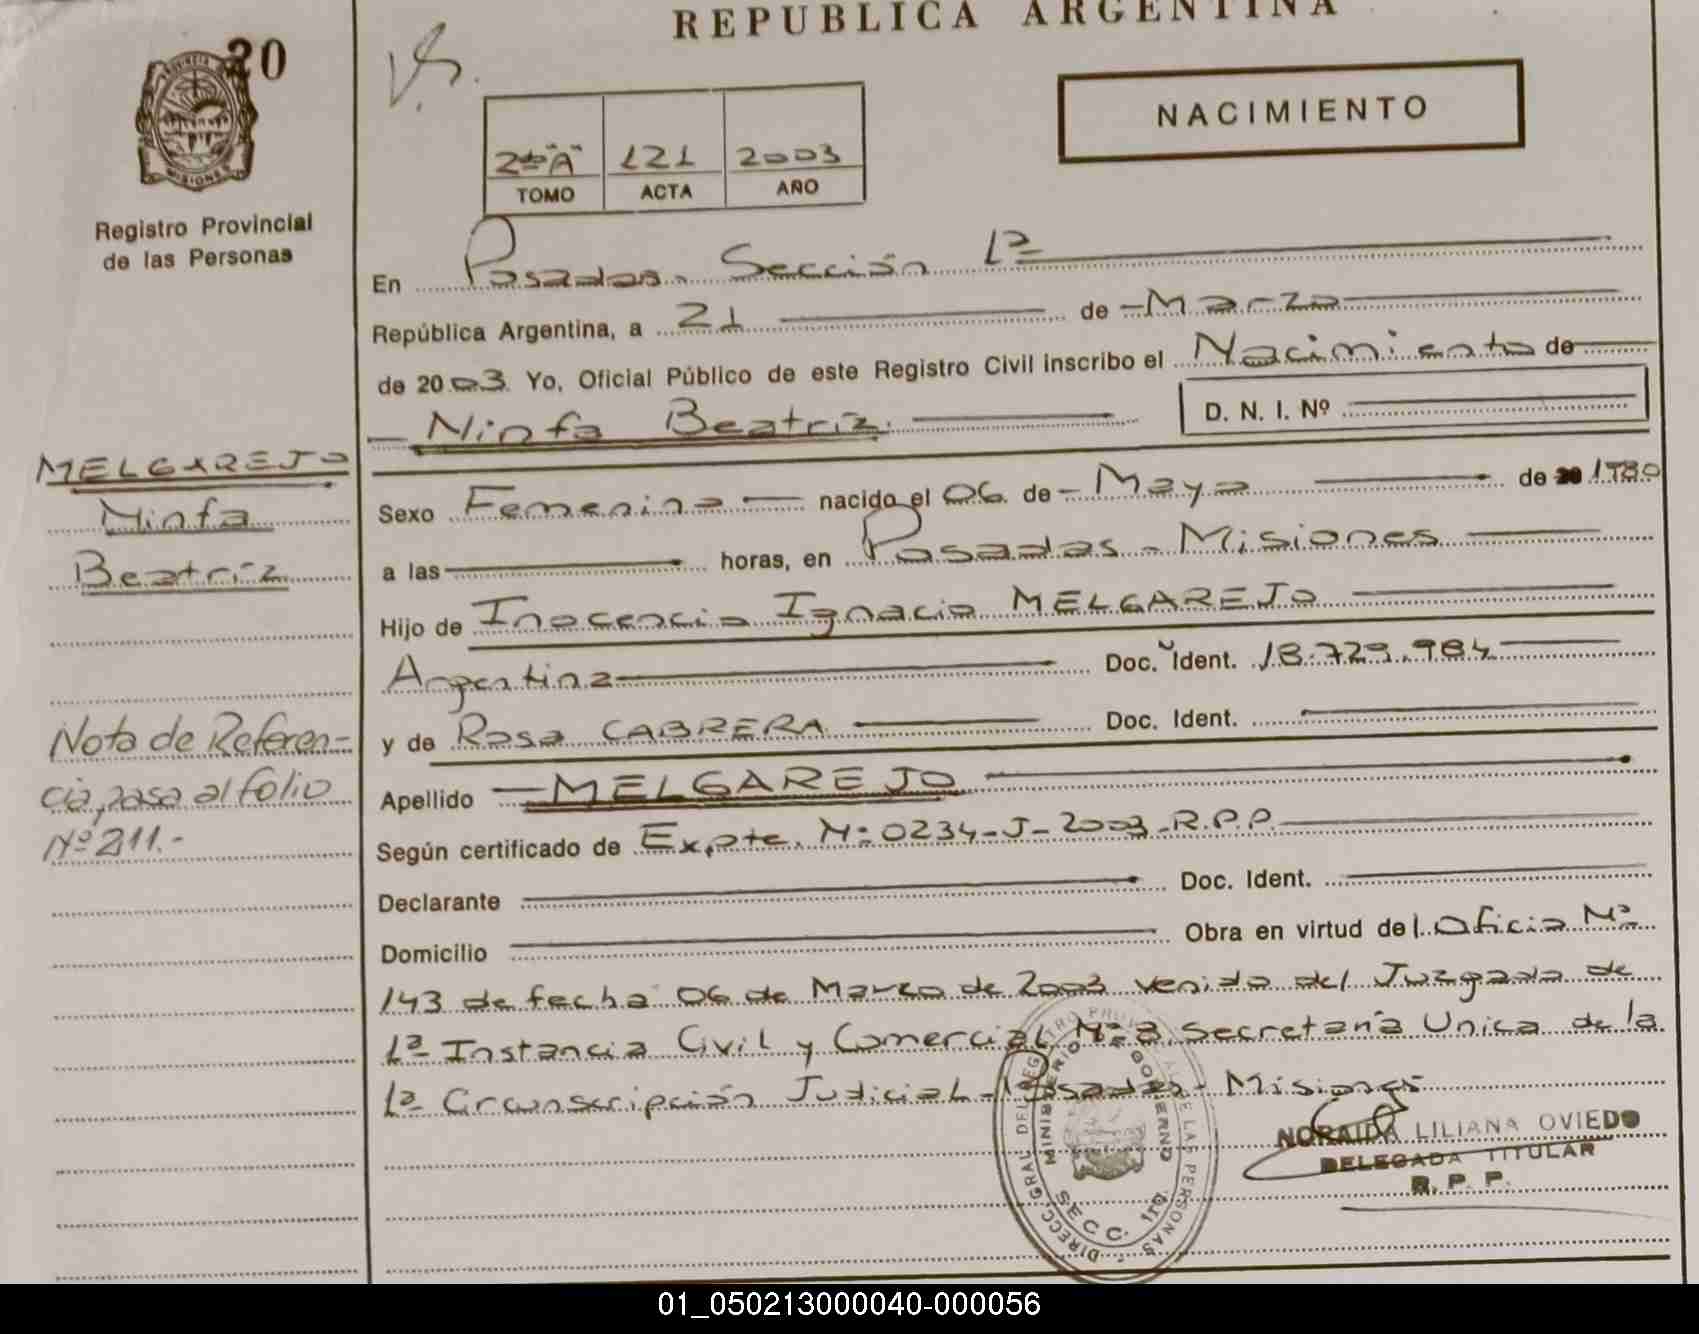 REPUBLICA ARGENTINA
20
PROVINCIA
MISIONES
Registro Provincial
de las Personas
2º "A" 121 2003
TOMO ACTA AÑO
NACIMIENTO
En Posadas. Sección 1ª
República Argentina, a 21 de Marzo
de 2003 Yo, Oficial Público de este Registro Civil inscribo el Nacimiento de
Ninfa Beatriz.
D. N. I. Nº
MELGAREJO
Ninfa
Beatriz
Sexo Femenino nacido el 06 de Mayo de 20 1980
a las horas, en Posadas - Misiones
Hijo de Inocencio Ignacio MELGAREJO
Argentina Doc. Ident. 18.729.984
y de Rosa CABRERA Doc. Ident.
Apellido MELGAREJO
Nota de Referen-
cia, pasa al folio
Nº 211.-
Según certificado de Expte. Nº 0234-J-2003-R.P.P.
Declarante Doc. Ident.
Domicilio Obra en virtud del Oficio Nº
143 de fecha 06 de Marzo de 2003 venido del Juzgado de
1ª Instancia Civil y Comercial Nº 8 Secretaría Unica de la
1ª Circunscripción Judicial - Posadas - Misiones
NORAIDA LILIANA OVIEDO
DELEGADA TITULAR
R. P. P.
MINISTERIO GOBIERNO
SECC. 1ra
01_050213000040-000056